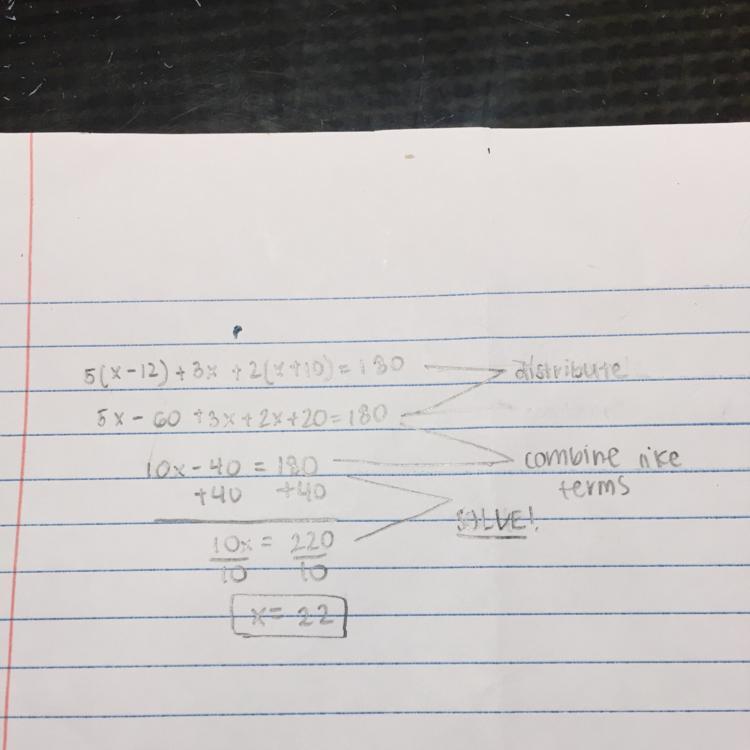 5(x-12)+3x+2(x+10)=180 distribute
5x-60+3x+2x+20=180
10x-40=180 combine like
+40 +40 terms
SOLVE!
10x = 220
10 10
x=22